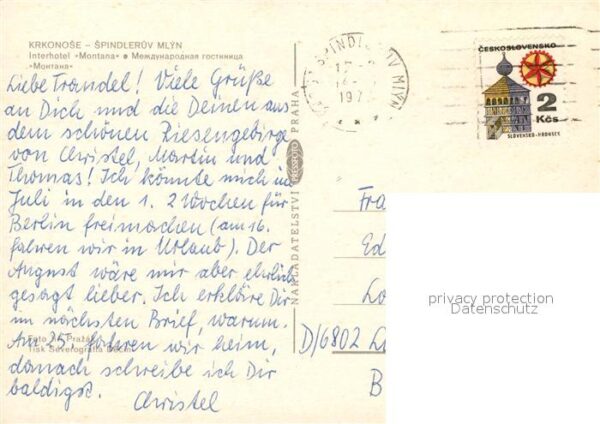 KRKONOŠE – ŠPINDLERŮV MLÝN
Interhotel «Montana» • Международная гостиница
«Монтана»
Liebe Trandel! Viele Grüße
an Dich und die Deinen aus
dem schönen Riesengebirge
von Christel, Martin und
Thomas! Ich könnte mich im
Juli in den 1. 2 Wochen für
Berlin freimachen (am 16.
fahren wir in Urlaub). Der
August wäre mir aber ehrlich
gesagt lieber. Ich erkläre Dir
im nächsten Brief, warum.
Am 25. fahren wir heim,
danach schreibe ich Dir
baldigst.
Christel
Foto Jiří Pražák
Tisk Severografia Děčín
NAKLADATELSTVÍ PRESSFOTO PRAHA
ŠPINDLERŮV MLÝN
197
ČESKOSLOVENSKO
2
Kčs
SLOVENSKO-HRONSEK
Fra
Ed
Lo
D/6802 L
B
privacy protection
Datenschutz